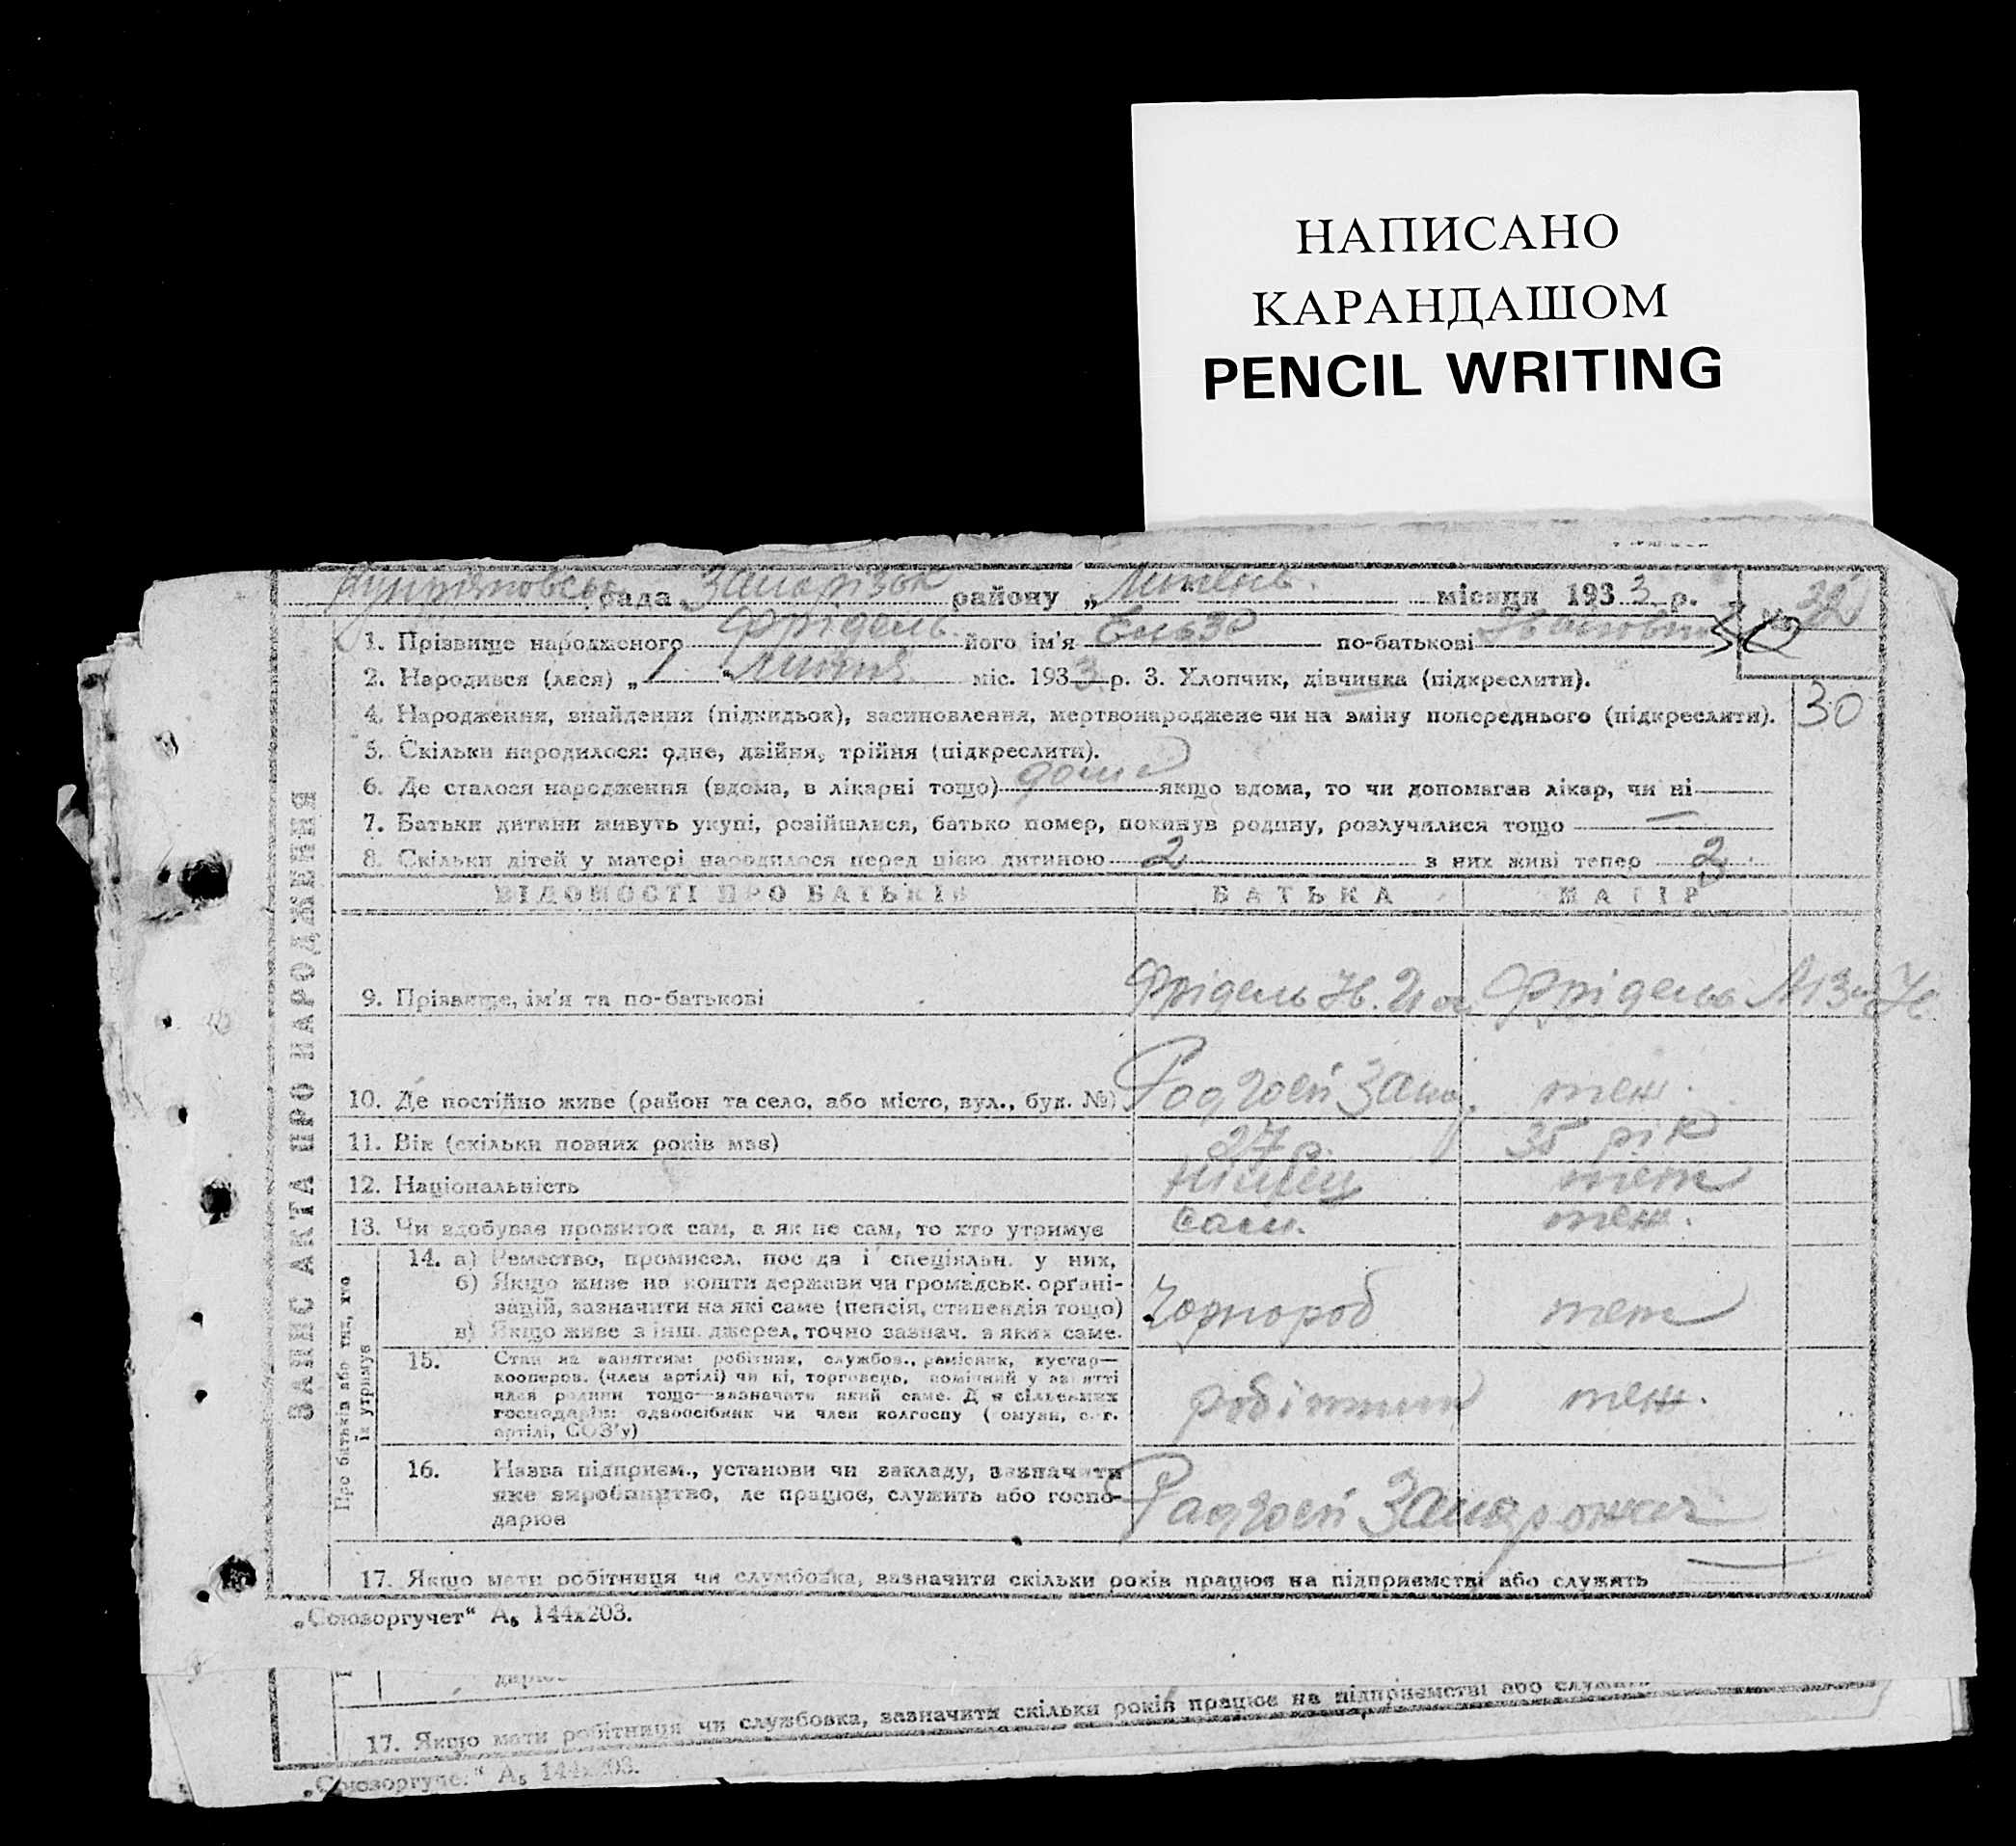 НАПИСАНО
КАРАНДАШОМ
PENCIL WRITING
рада Запорізьк району „ “ місяця 193 3 р.
1. Прізвище народженого Фрідель його ім'я Ельза по-батькові
2. Народився (лася) „ 1 “ міс. 193 3 р. 3. Хлопчик, дівчинка (підкреслити).
4. Народження, знайдення (підкидьок), засиновлення, мертвонароджене чи на зміну попереднього (підкреслити). 30
5. Скільки народилося: одне, двійня, трійня (підкреслити).
6. Де сталося народження (вдома, в лікарні тощо) дома якщо вдома, то чи допомагав лікар, чи ні
7. Батьки дитини живуть укупі, розійшлися, батько помер, покинув родину, розлучилися тощо —
8. Скільки дітей у матері народилося перед цією дитиною 2 з них живі тепер 2
ЗАПИС АКТА ПРО НАРОДЖЕННЯ
ВІДОМОСТІ ПРО БАТЬКІВ БАТЬКА МАТІР
9. Прізвище, ім'я та по-батькові Фрідель Фрідель
10. Де постійно живе (район та село, або місто, вул., буд. №) теж.
11. Вік (скільки повних років має) 27 р. 35 рік
12. Національність Німець теж
13. Чи здобуває прожиток сам, а як не сам, то хто утримує Сам. теж.
Про батьків або тих, хто їх утримує
14. а) Ремество, промисел, посада і спеціяльн. у них,
б) Якщо живе на кошти держави чи громадськ. органі-
зацій, зазначити на які саме (пенсія, стипендія тощо) Чорнороб теж
в) Якщо живе з інш. джерел, точно зазнач. з яких саме.
15. Стан за заняттям: робітник, службов., ремісник, кустар—
кооперов. (член артілі) чи ні, торговець, помічний у занятті
член родини тощо—зазначити який саме. Для сільських
господарів: одноосібник чи член колгоспу (комуни, с.-г.
артілі, СОЗ'у) робітник теж.
16. Назва підприєм., установи чи закладу, зазначити
яке виробництво, де працює, служить або госпо-
дарює
17. Якщо мати робітниця чи службовка, зазначити скільки років працює на підприємстві або служить
„Союзоргучет“ А₅ 144х203.
17. Якщо мати робітниця чи службовка, зазначити скільки років працює на підприємстві або служить
„Союзоргучет“ А₅ 144х203.